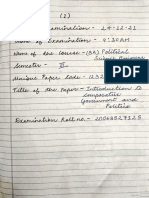 (1)
Examination - 14-12-21
of Examination - 9:30 AM
Name of the Course - (BA) Political
Semester - III
Unique Paper Code -
Title of the Paper - Introduction to
Comparative
Government and
Politics
Examination Roll no. -